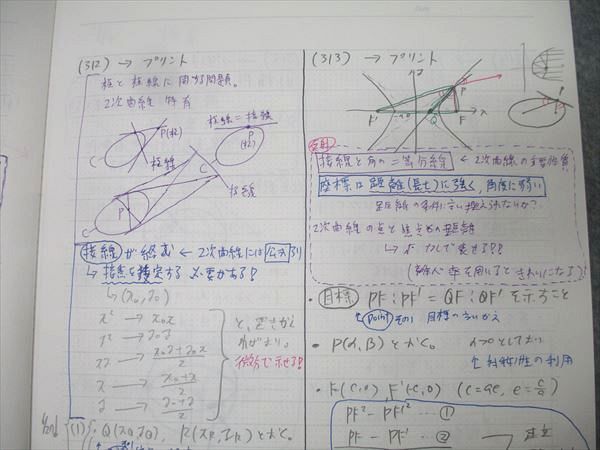 (312) → プリント
極と極線に関する問題。
2次曲線 特有
P(極)
極線
C
極線=接線
P
(極)
C
極線
P
C
接線が絡む ← 2次曲線には公式あり
↳ 接点を設定する 必要がある!
↳ (x₀, y₀)
x² → x₀x
y² → y₀y
xy → (x₀y+y₀x)/2
x → (x₀+x)/2
y → (y₀+y)/2
と、置きかえ
ればよい。
微分で示せる!
(1)・Q(xQ, yQ), R(xR, yR)とおく。
(313) → プリント
y
P
F'
Q
F
x
反射
接線と角の二等分線 ← 2次曲線の主要性質
座標は距離(長さ)に強く、角度に弱い
距離の条件に言い換えられないか?
2次曲線の点と焦点との距離
→ √ なしで表せる!!
(離心率を用いるときれいになる)
・目標 PF:PF' = QF:QF' を示すこと
Point その1 目標の言いかえ
・P(α,β)とおく。
↑対称性の利用
・F(c,0), F'(-c,0) (c=ae, e=c/a)
PF² - PF'² … ①
PF - PF' … ②